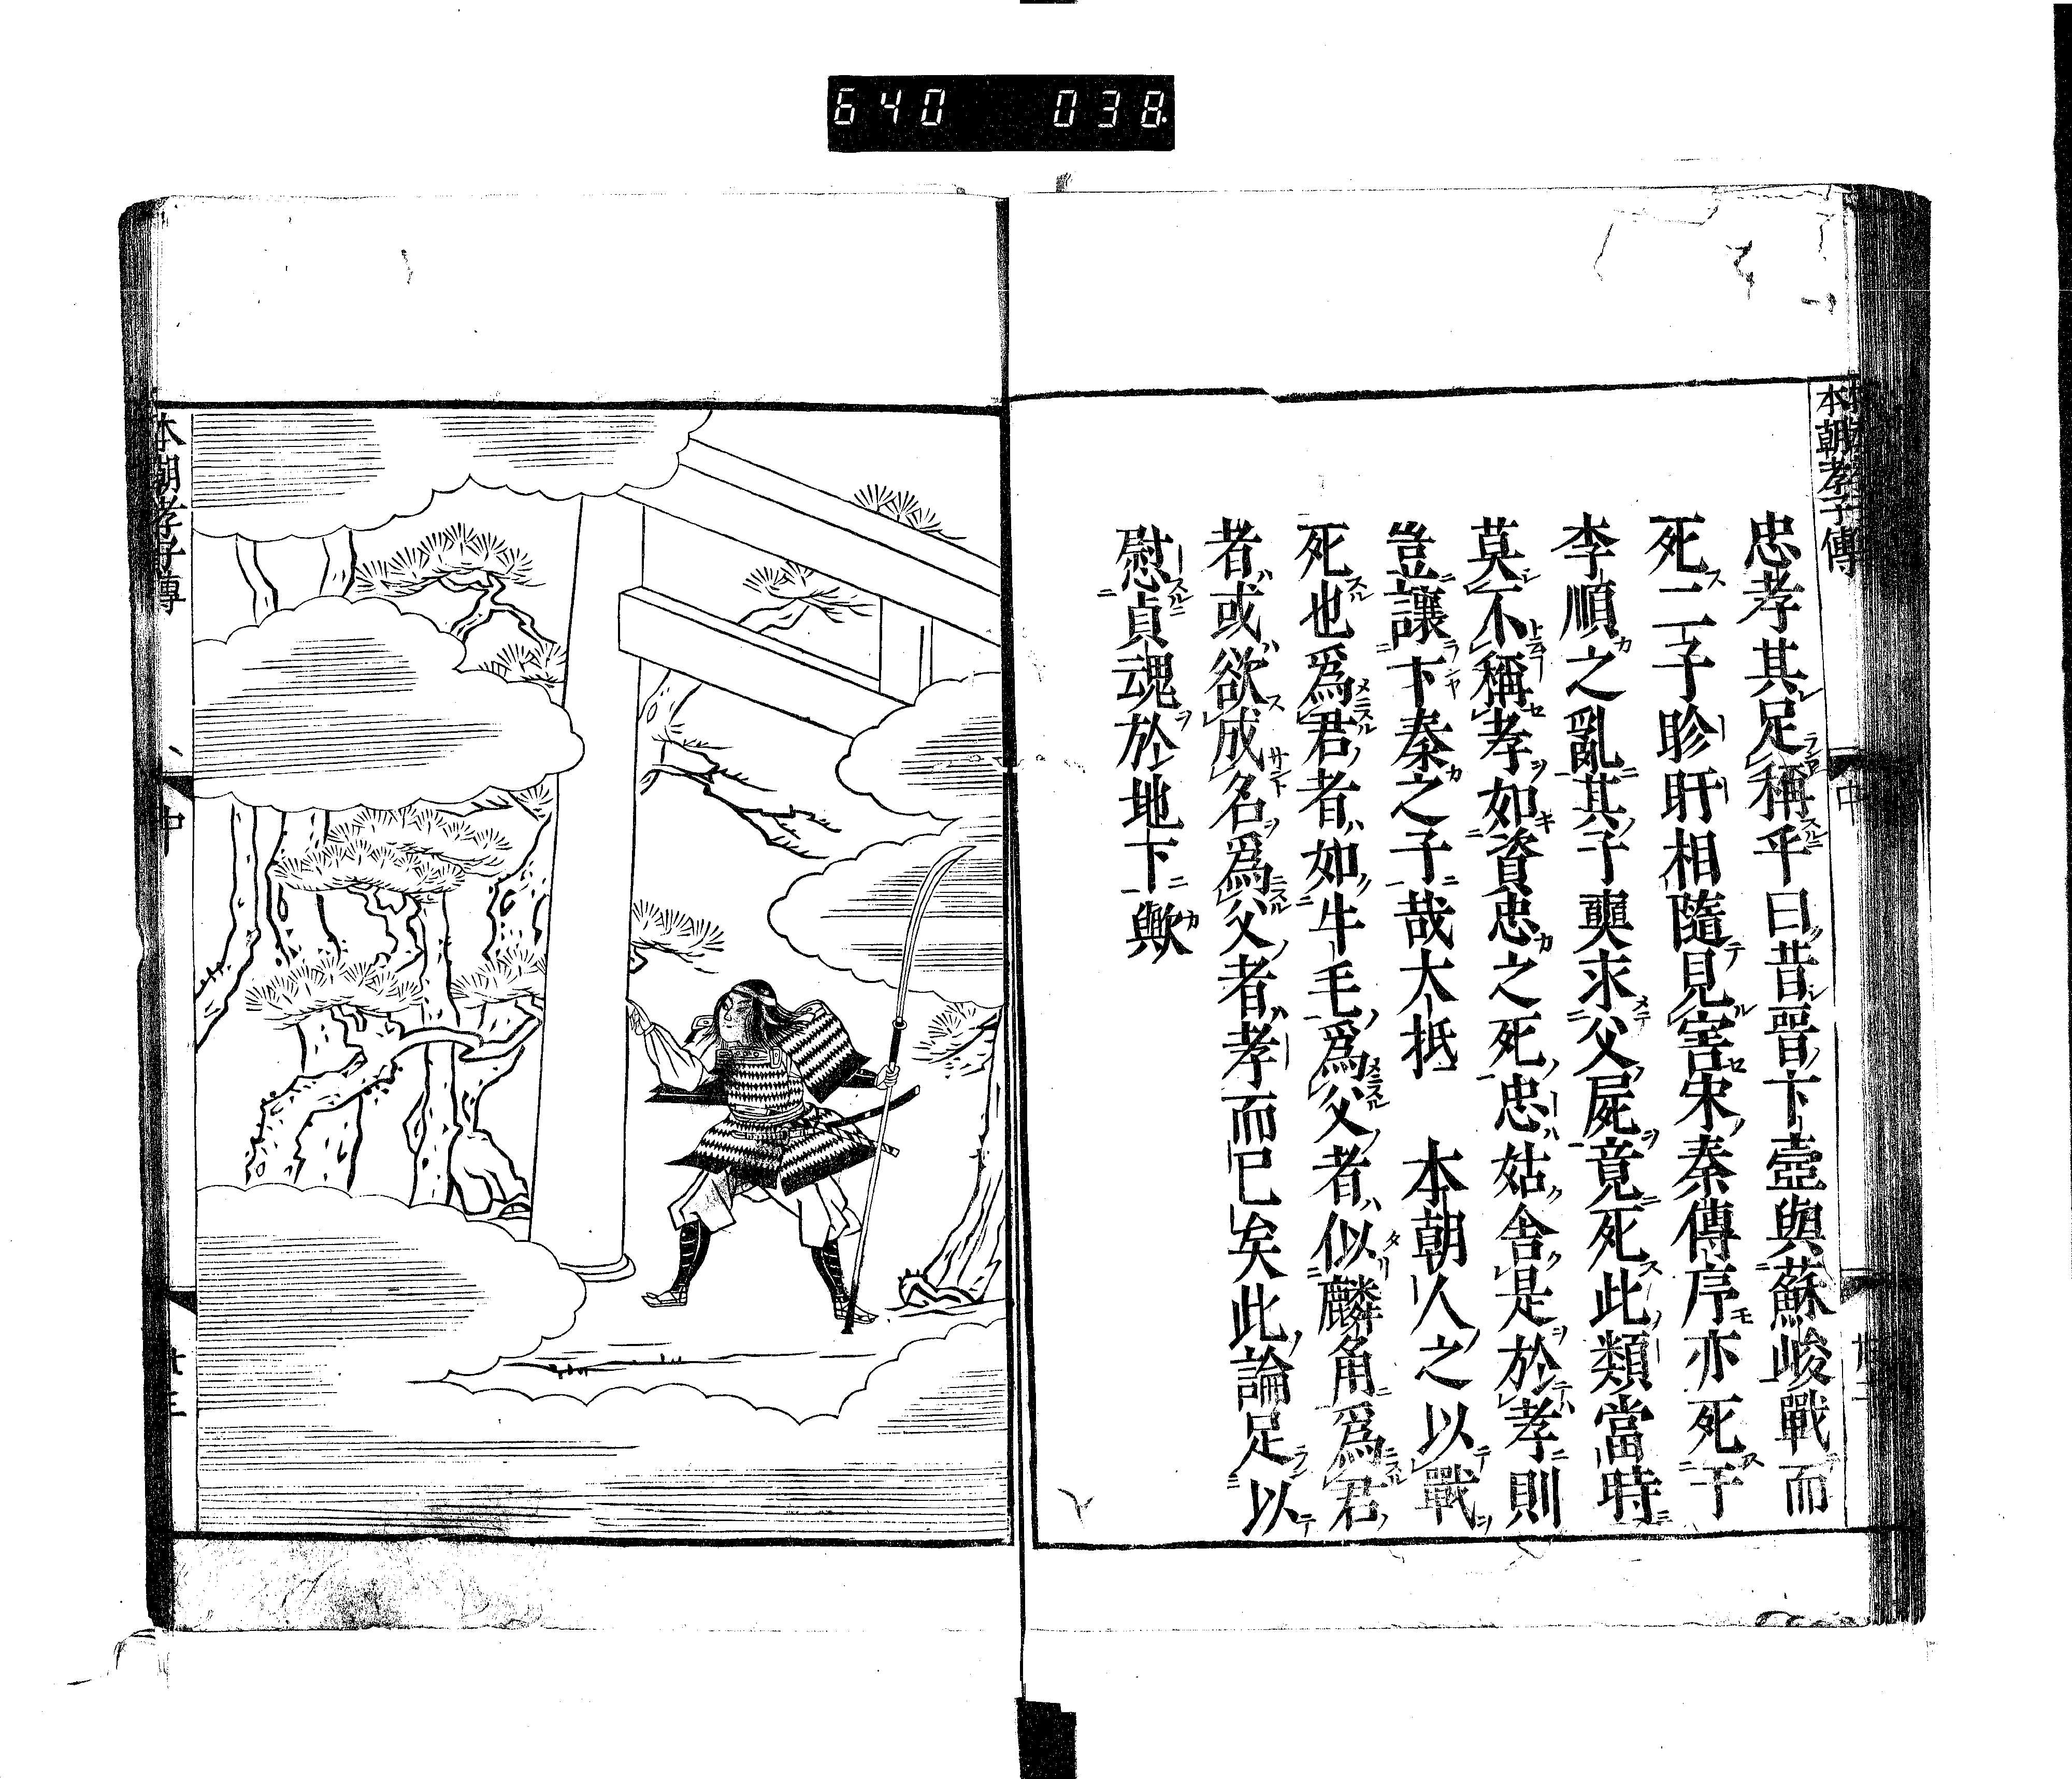 640 038
本朝孝子傳
中
忠孝其足稱乎曰昔晉卞壼與蘇峻戰而
死二子眕盱相隨見害宋秦傳序亦死于
李順之亂其子奭求父屍竟死此類當時
莫不稱孝如資忠之死忠姑舍是於孝則
豈讓卞秦之子哉大抵　本朝人之以戰
死也爲君者如牛毛爲父者似麟角爲君
者或欲成名爲父者孝而已矣此論足以
慰貞魂於地下歟
本朝孝子傳
中